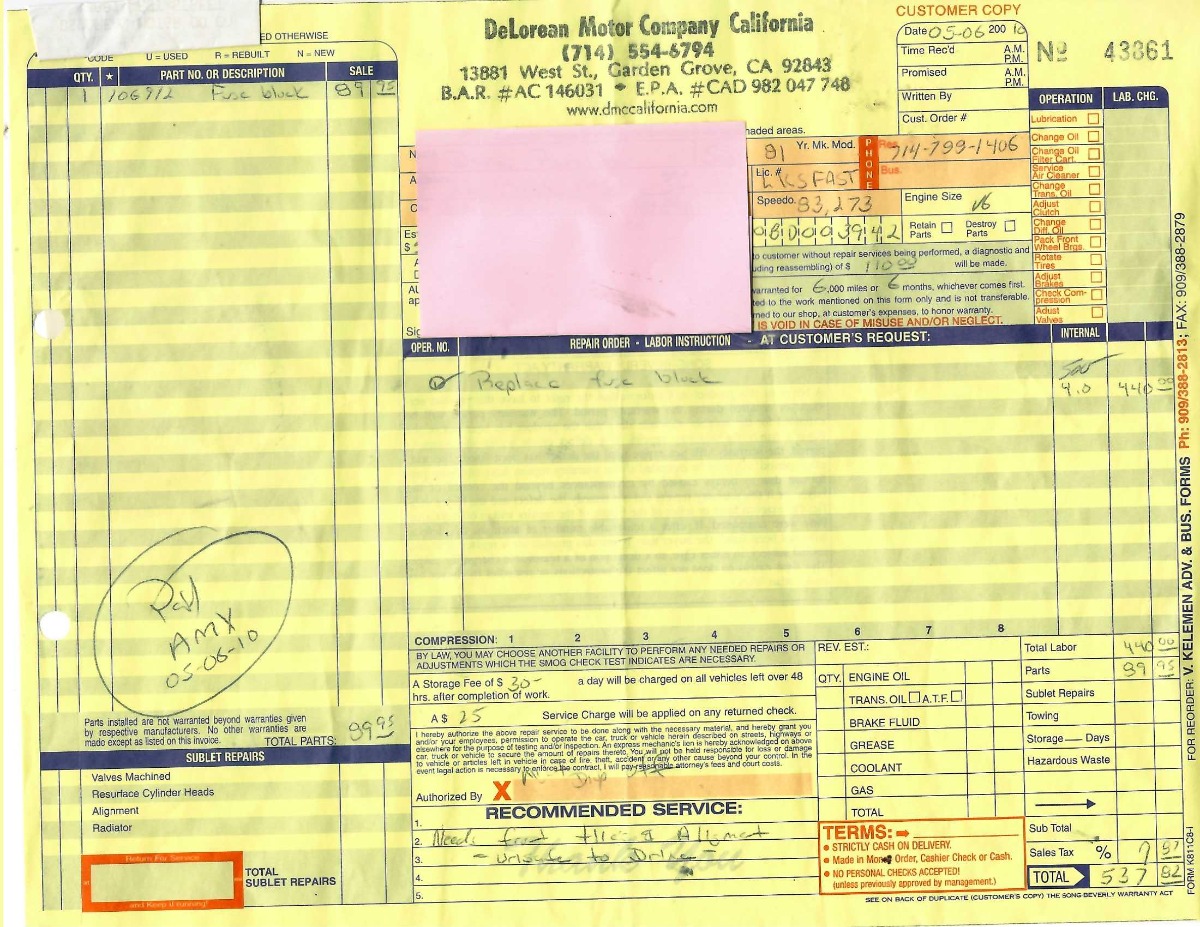 CUSTOMER COPY
DeLorean Motor Company California
(714) 554-6794
13881 West St., Garden Grove, CA 92843
B.A.R. #AC 146031 • E.P.A. #CAD 982 047 748
www.dmccalifornia.com
Date 05-06 200 10
Time Rec'd A.M. P.M.
Promised A.M. P.M.
Written By
Cust. Order #
No 43861
ED OTHERWISE
CODE U = USED R = REBUILT N = NEW
QTY. ★ PART NO. OR DESCRIPTION SALE
1 106912 Fuse block 89 95
OPERATION LAB. CHG.
Lubrication
Change Oil
Change Oil Filter Cart.
Service Air Cleaner
Change Trans. Oil
Adjust Clutch
Change Diff. Oil
Pack Front Wheel Brgs.
Rotate Tires
Adjust Brakes
Check Compression
Adjust Valves
haded areas.
81 Yr. Mk. Mod. PHONE Res. 714-799-1406
Lic. # LKSFAST Bus.
Speedo. 83,273 Engine Size V6
0BD003942 Retain Parts Destroy Parts
to customer without repair services being performed, a diagnostic and
uding reassembling) of $ 110 00 will be made.
warranted for 6,000 miles or 6 months, whichever comes first.
ted to the work mentioned on this form only and is not transferable.
rmed to our shop, at customer's expenses, to honor warranty.
IS VOID IN CASE OF MISUSE AND/OR NEGLECT.
OPER. NO. REPAIR ORDER - LABOR INSTRUCTION - AT CUSTOMER'S REQUEST: INTERNAL
Replace fuse block 4.0 440 00
Pd
AMX
05-06-10
COMPRESSION: 1 2 3 4 5 6 7 8
BY LAW, YOU MAY CHOOSE ANOTHER FACILITY TO PERFORM ANY NEEDED REPAIRS OR
ADJUSTMENTS WHICH THE SMOG CHECK TEST INDICATES ARE NECESSARY.
A Storage Fee of $ 30- a day will be charged on all vehicles left over 48
hrs. after completion of work.
A $ 25 Service Charge will be applied on any returned check.
I hereby authorize the above repair service to be done along with the necessary material, and hereby grant you
and/or your employees, permission to operate the car, truck or vehicle herein described on streets, highways or
elsewhere for the purpose of testing and/or inspection. An express mechanic's lien is hereby acknowledged on above
car, truck or vehicle to secure the amount of repairs thereto. You will not be held responsible for loss or damage
to vehicle or articles left in vehicle in case of fire, theft, accident or any other cause beyond your control. In the
event legal action is necessary to enforce the contract, I will pay reasonable attorney's fees and court costs.
Authorized By X
RECOMMENDED SERVICE:
1.
2. Needs front tires & Alignment
3. - unsafe to Drive
4.
5.
REV. EST.:
QTY. ENGINE OIL
TRANS. OIL A.T.F.
BRAKE FLUID
GREASE
COOLANT
GAS
TOTAL
TERMS:
• STRICTLY CASH ON DELIVERY.
• Made in Money Order, Cashier Check or Cash.
• NO PERSONAL CHECKS ACCEPTED!
(unless previously approved by management.)
Total Labor 440 00
Parts 89 95
Sublet Repairs
Towing
Storage — Days
Hazardous Waste
Sub Total
Sales Tax % 7 87
TOTAL 537 82
SEE ON BACK OF DUPLICATE (CUSTOMER'S COPY) THE SONG-BEVERLY WARRANTY ACT
Parts installed are not warranted beyond warranties given
by respective manufacturers. No other warranties are
made except as listed on this invoice. TOTAL PARTS: 89 95
SUBLET REPAIRS
Valves Machined
Resurface Cylinder Heads
Alignment
Radiator
Return For Service
and Keep it running!
TOTAL
SUBLET REPAIRS
FOR REORDER: V. KELEMEN ADV. & BUS. FORMS Ph: 909/388-2813; FAX: 909/388-2879
FORM K811C8-I